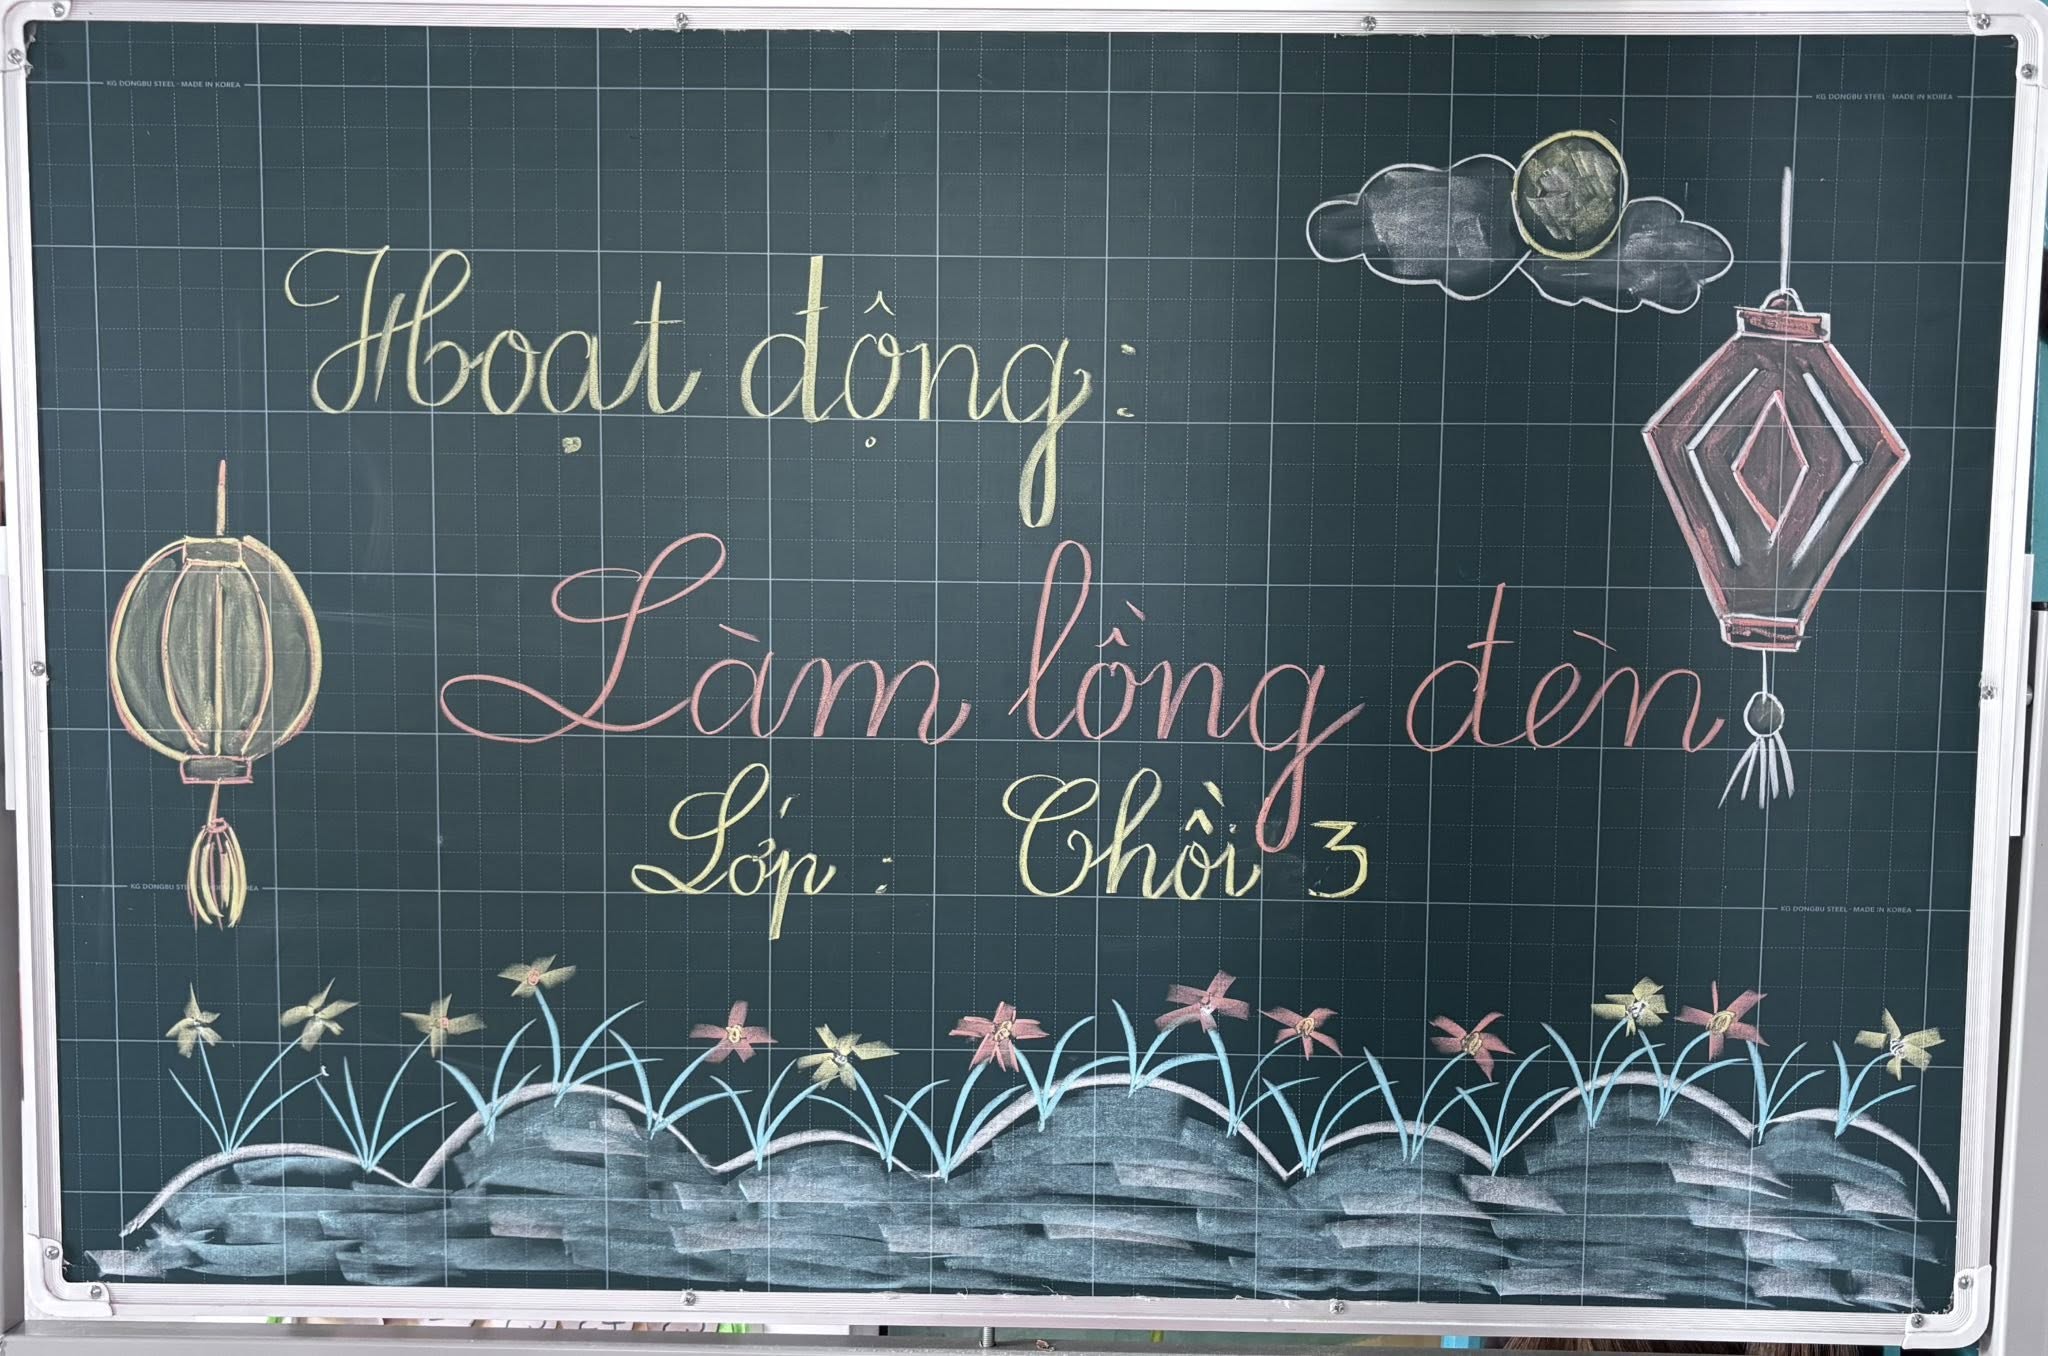 KG DONGBU STEEL - MADE IN KOREA
KG DONGBU STEEL - MADE IN KOREA
Hoạt động:
Làm lồng đèn
Lớp: Chồi 3
KG DONGBU STEEL - MADE IN KOREA
KG DONGBU STEEL - MADE IN KOREA